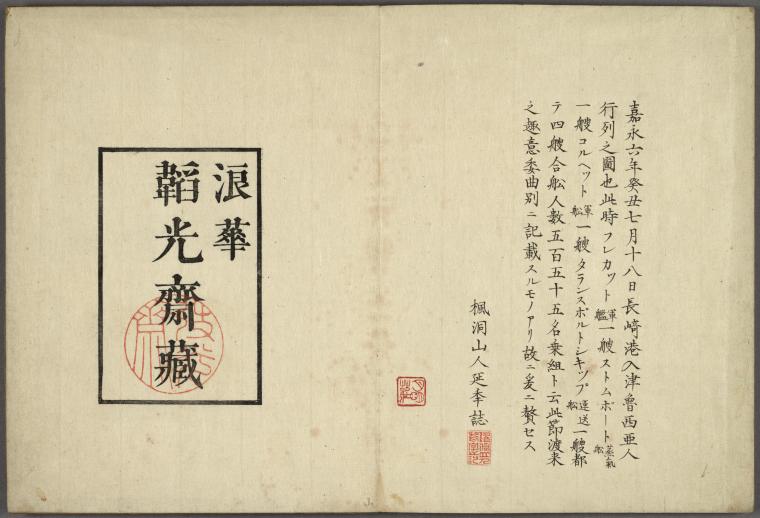 嘉永六年癸丑七月十八日長崎港入津魯西亜人
行列之圖也此時フレカット軍艦一艘ストムボート蒸氣舩
一艘コルヘット軍舩一艘タランスポルトシキップ運送舩一艘都
テ四艘合舩人數五百五十五名乗組ト云此節渡来
之趣意委曲別ニ記載スルモノアリ故ニ爰ニ贅セス
楓洞山人延季誌
浪華
韜光齋藏